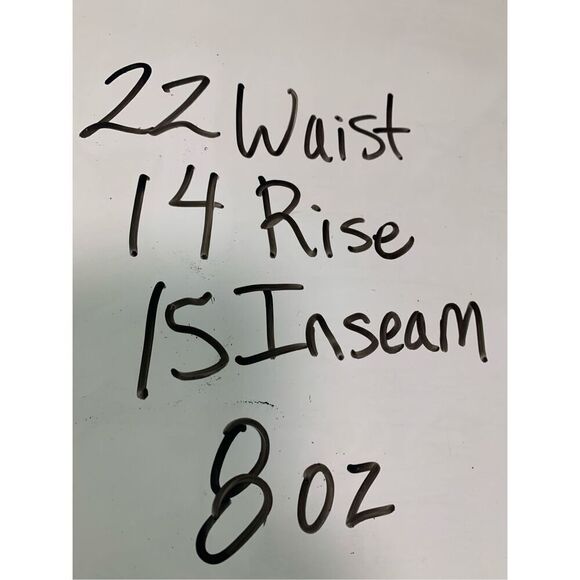 22 Waist
14 Rise
15 Inseam
8 oz